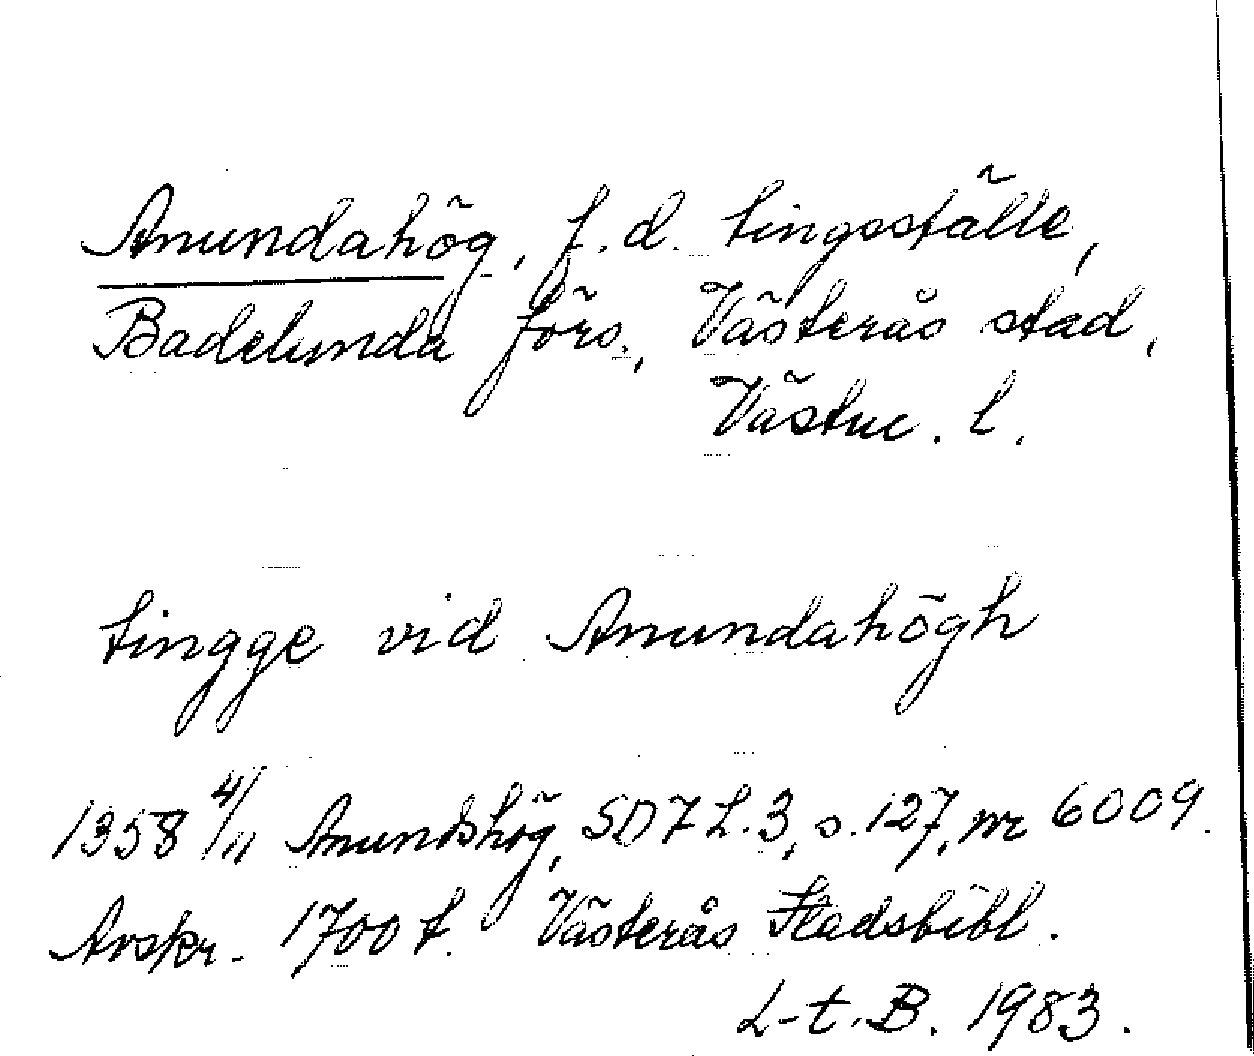 Anundahög, f.d. tingsställe,
Badelunda förs., Västerås stad,
Västm. l.
tingge vid Anundahögh
1358 4/11 Anundshög, SD 7 h. 3, s. 127, nr 6009.
Avskr. 1700 t. Västerås Stadsbibl.
L-t. B. 1983.